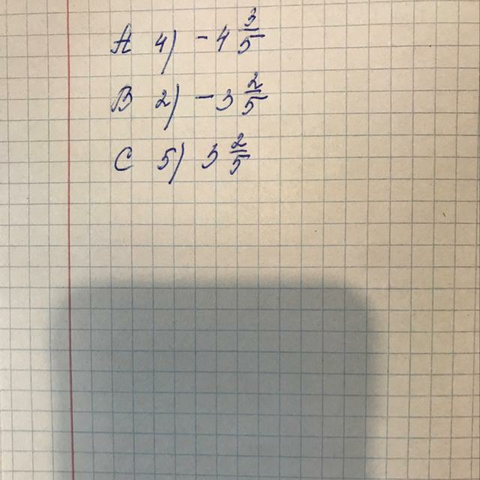 A 4) -4 3/5
B 2) -3 2/5
C 5) 3 2/5